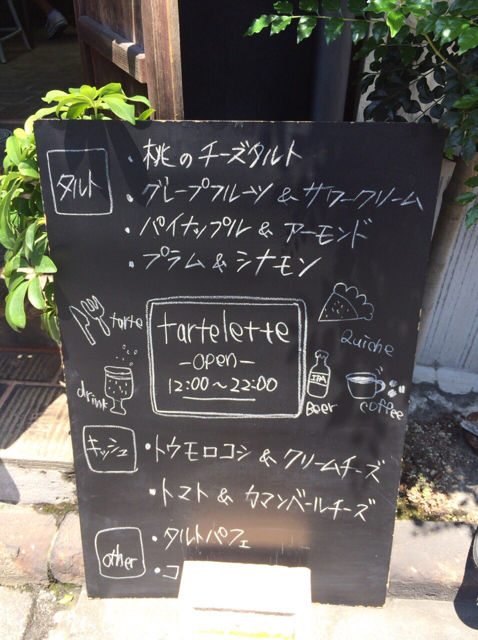 タルト
・桃のチーズタルト
・グレープフルーツ & サワークリーム
・パイナップル & アーモンド
・プラム & シナモン
tarte
tartelette
-open-
12:00～22:00
Quiche
drink
IPA
Beer
coffee
キッシュ
・トウモロコシ & クリームチーズ
・トマト & カマンベールチーズ
other
・タルトパフェ
・コ